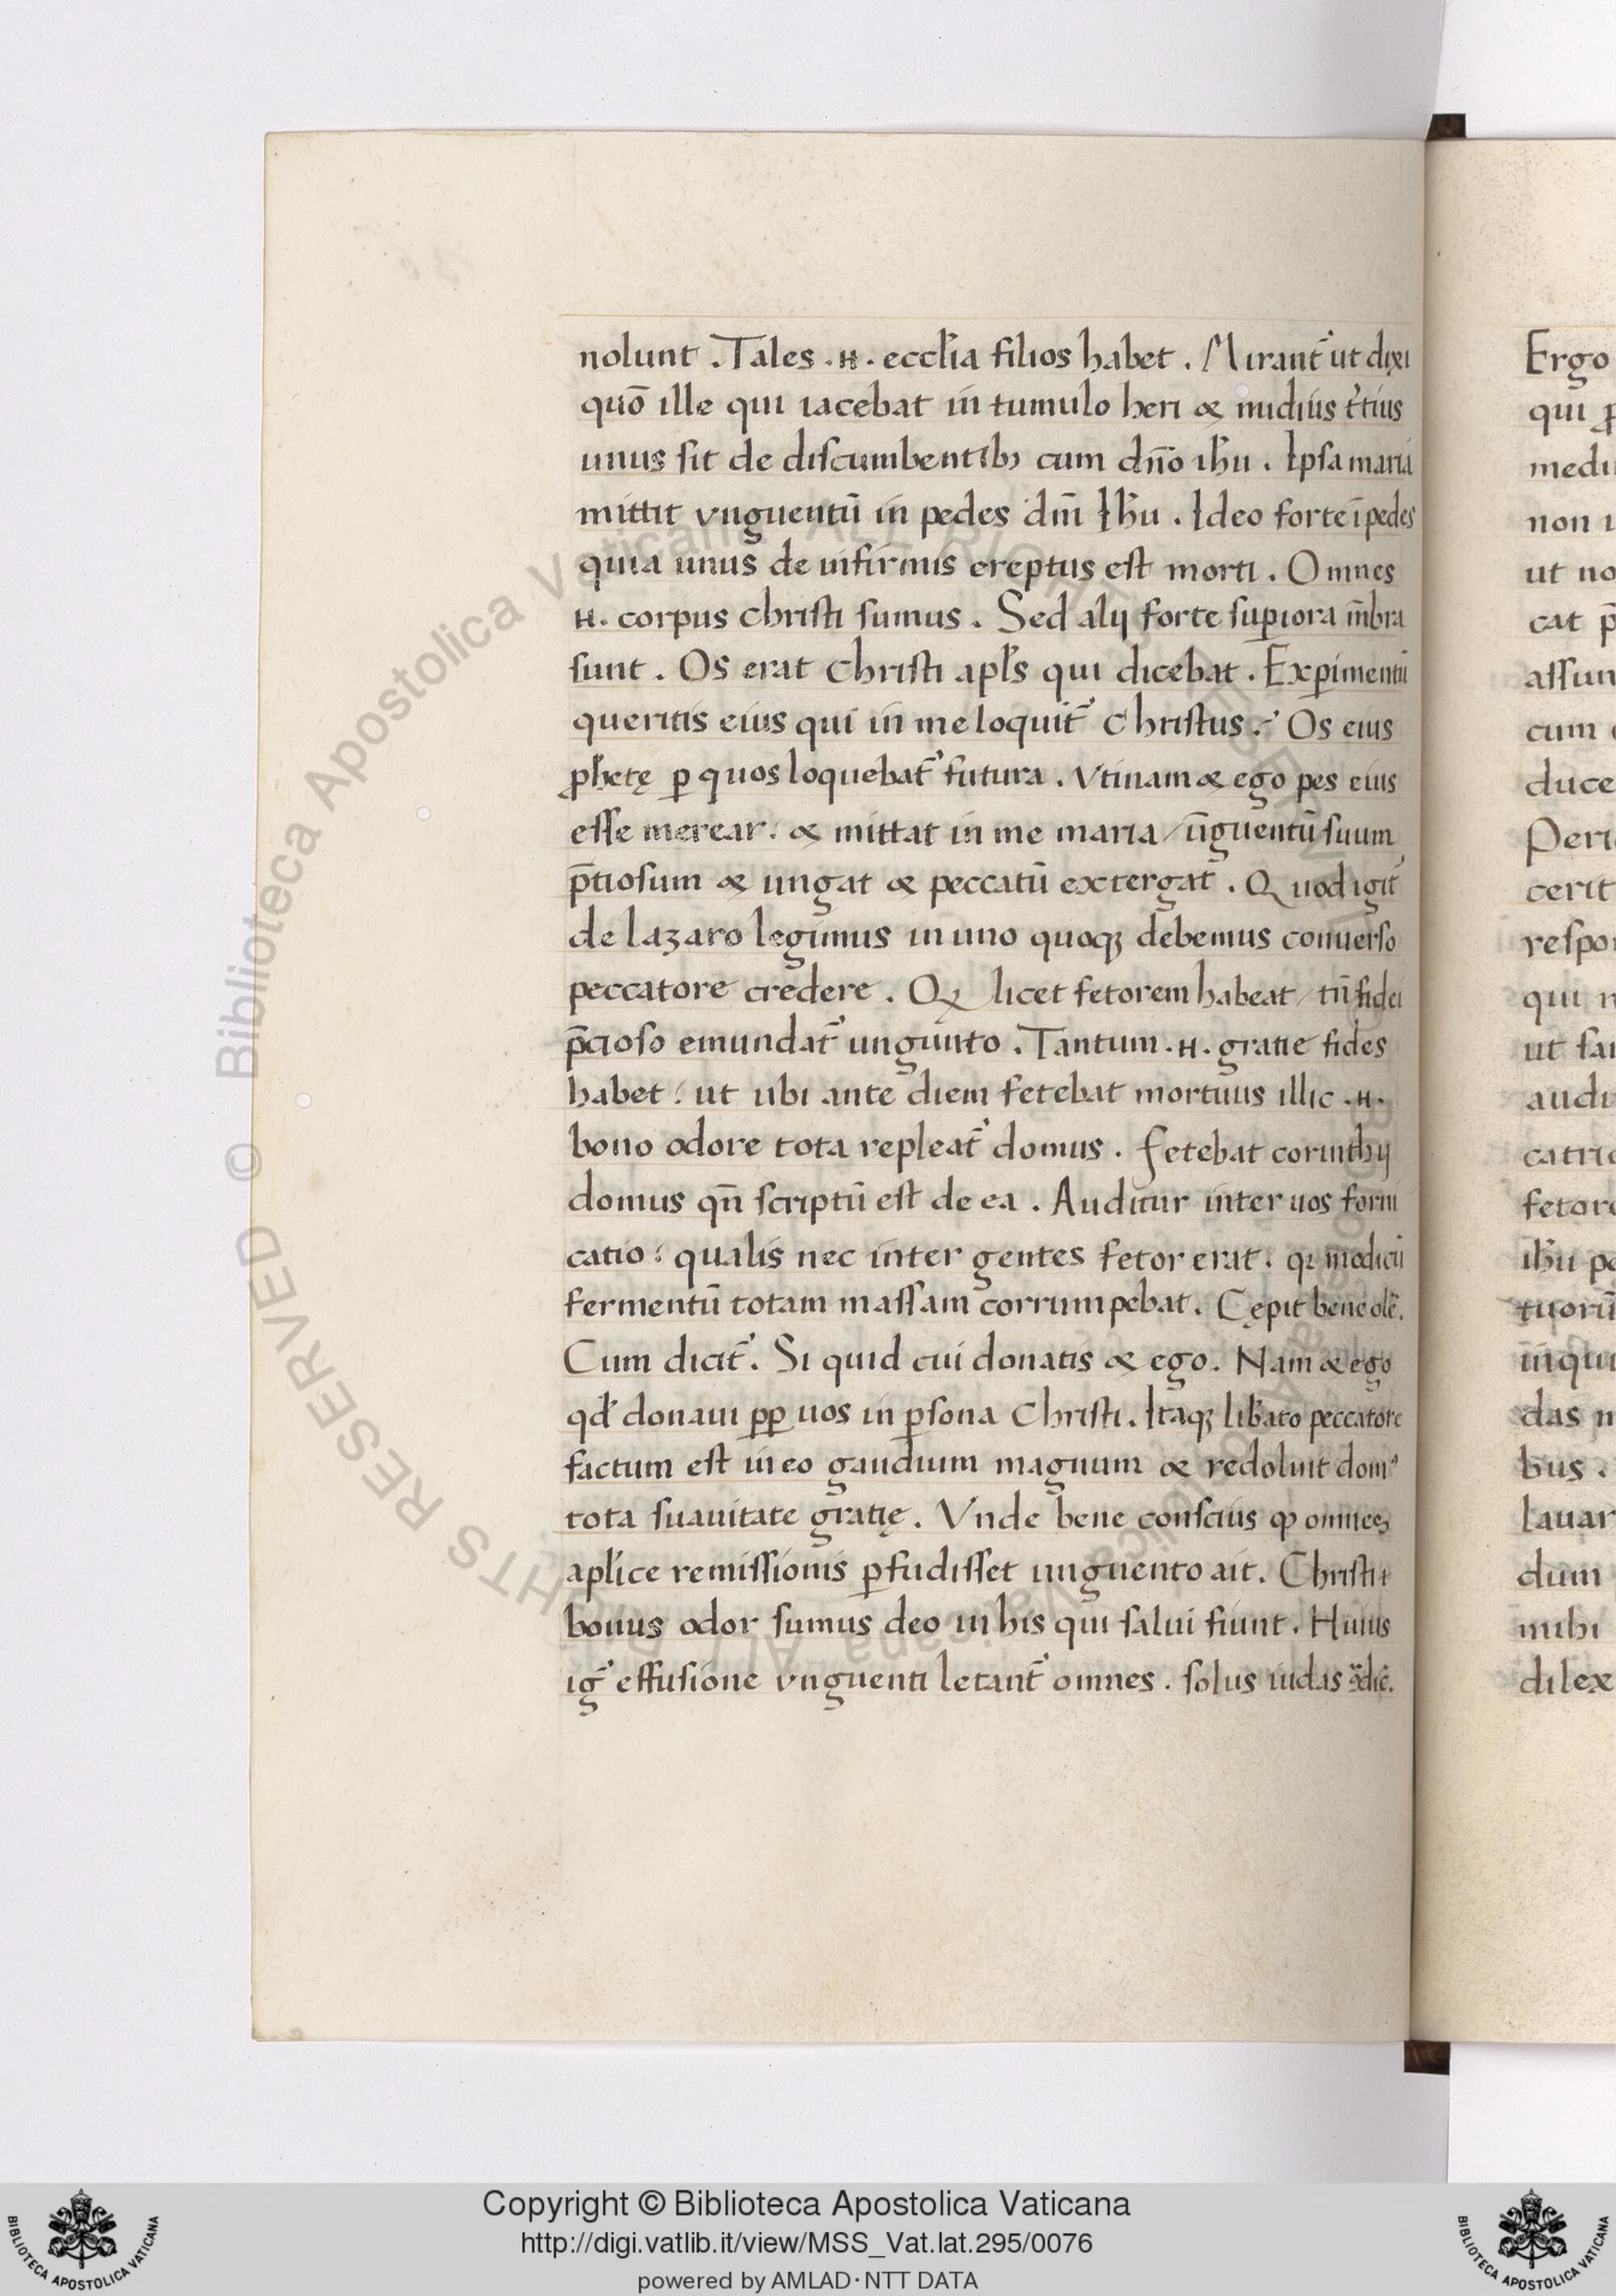 nolunt . Tales . н . eccl̄ia filios habet . Mirant᷑ ut dixi
quō ille qui iacebat in tumulo heri & nudius t̓tius
unus sit de discumbentib; cum dn̄o ih̄u . Ipsa maria
mittit vnguentū in pedes dn̄i Ih̄u . Ideo forte ī pedes
quia unus de infirmis ereptus est morti . Omnes
н . corpus christi sumus . Sed alij forte suꝑiora m̄bra
sunt . Os erat christi apl̄s qui dicebat . Exꝑimentū
queritis eius qui in me loquit᷑ Christus . Os eius
ꝓhetę ꝑ quos loquebat᷑ futura . Vtinam & ego pes eius
esse merear . & mittat in me maria / ūguentū suum
p̄tiosum & ungat & peccatū extergat . Quod igit᷑
de lazaro legimus in uno quoqꝫ debemus conuerso
peccatore credere . Qꝫ licet fetorem habeat / tn̄ fidei
p̄cioso emundat᷑ unguto . Tantum . н . gratie fides
habet : ut ubi ante diem fetebat mortuus illic . н .
bono odore tota repleat᷑ domus . fetebat corinthij
domus qn̄ scriptū est de ea . Auditur inter uos forni
catio : qualis nec inter gentes fetor erat . qꝛ modicū
fermentū totam massam corrumpebat . Cępit bene olē .
Cum dicit᷑ . Si quid cui donatis & ego . Nam & ego
qd̓ donaui ꝑꝑ uos in ꝑsona Christi . Itaqꝫ lib̄ato peccatore
factum est in eo gaudium magnum & redoluit domꝰ
tota suauitate gratię . Vnde bene conscius ꝙ omnes
apl̄ice remissionis ꝑfudisset unguento ait . Christi
bonus odor sumus deo in his qui salui fiunt . Huius
ig᷑ effusione vnguenti letant᷑ omnes . solus iudas
Ergo
qui
medi
non
ut no
cat
assun
cum
duce
Peri
cerit
respo
qui
ut
audi
catri
fetor
ih̄u
tuorū
das
bus .
lauar
dum
mihi
dilex
© Biblioteca Apostolica Vaticana ALL RIGHTS RESERVED
BIBLIOTECA APOSTOLICA VATICANA
Copyright © Biblioteca Apostolica Vaticana
http://digi.vatlib.it/view/MSS_Vat.lat.295/0076
powered by AMLAD·NTT DATA
BIBLIOTECA APOSTOLICA VATICANA